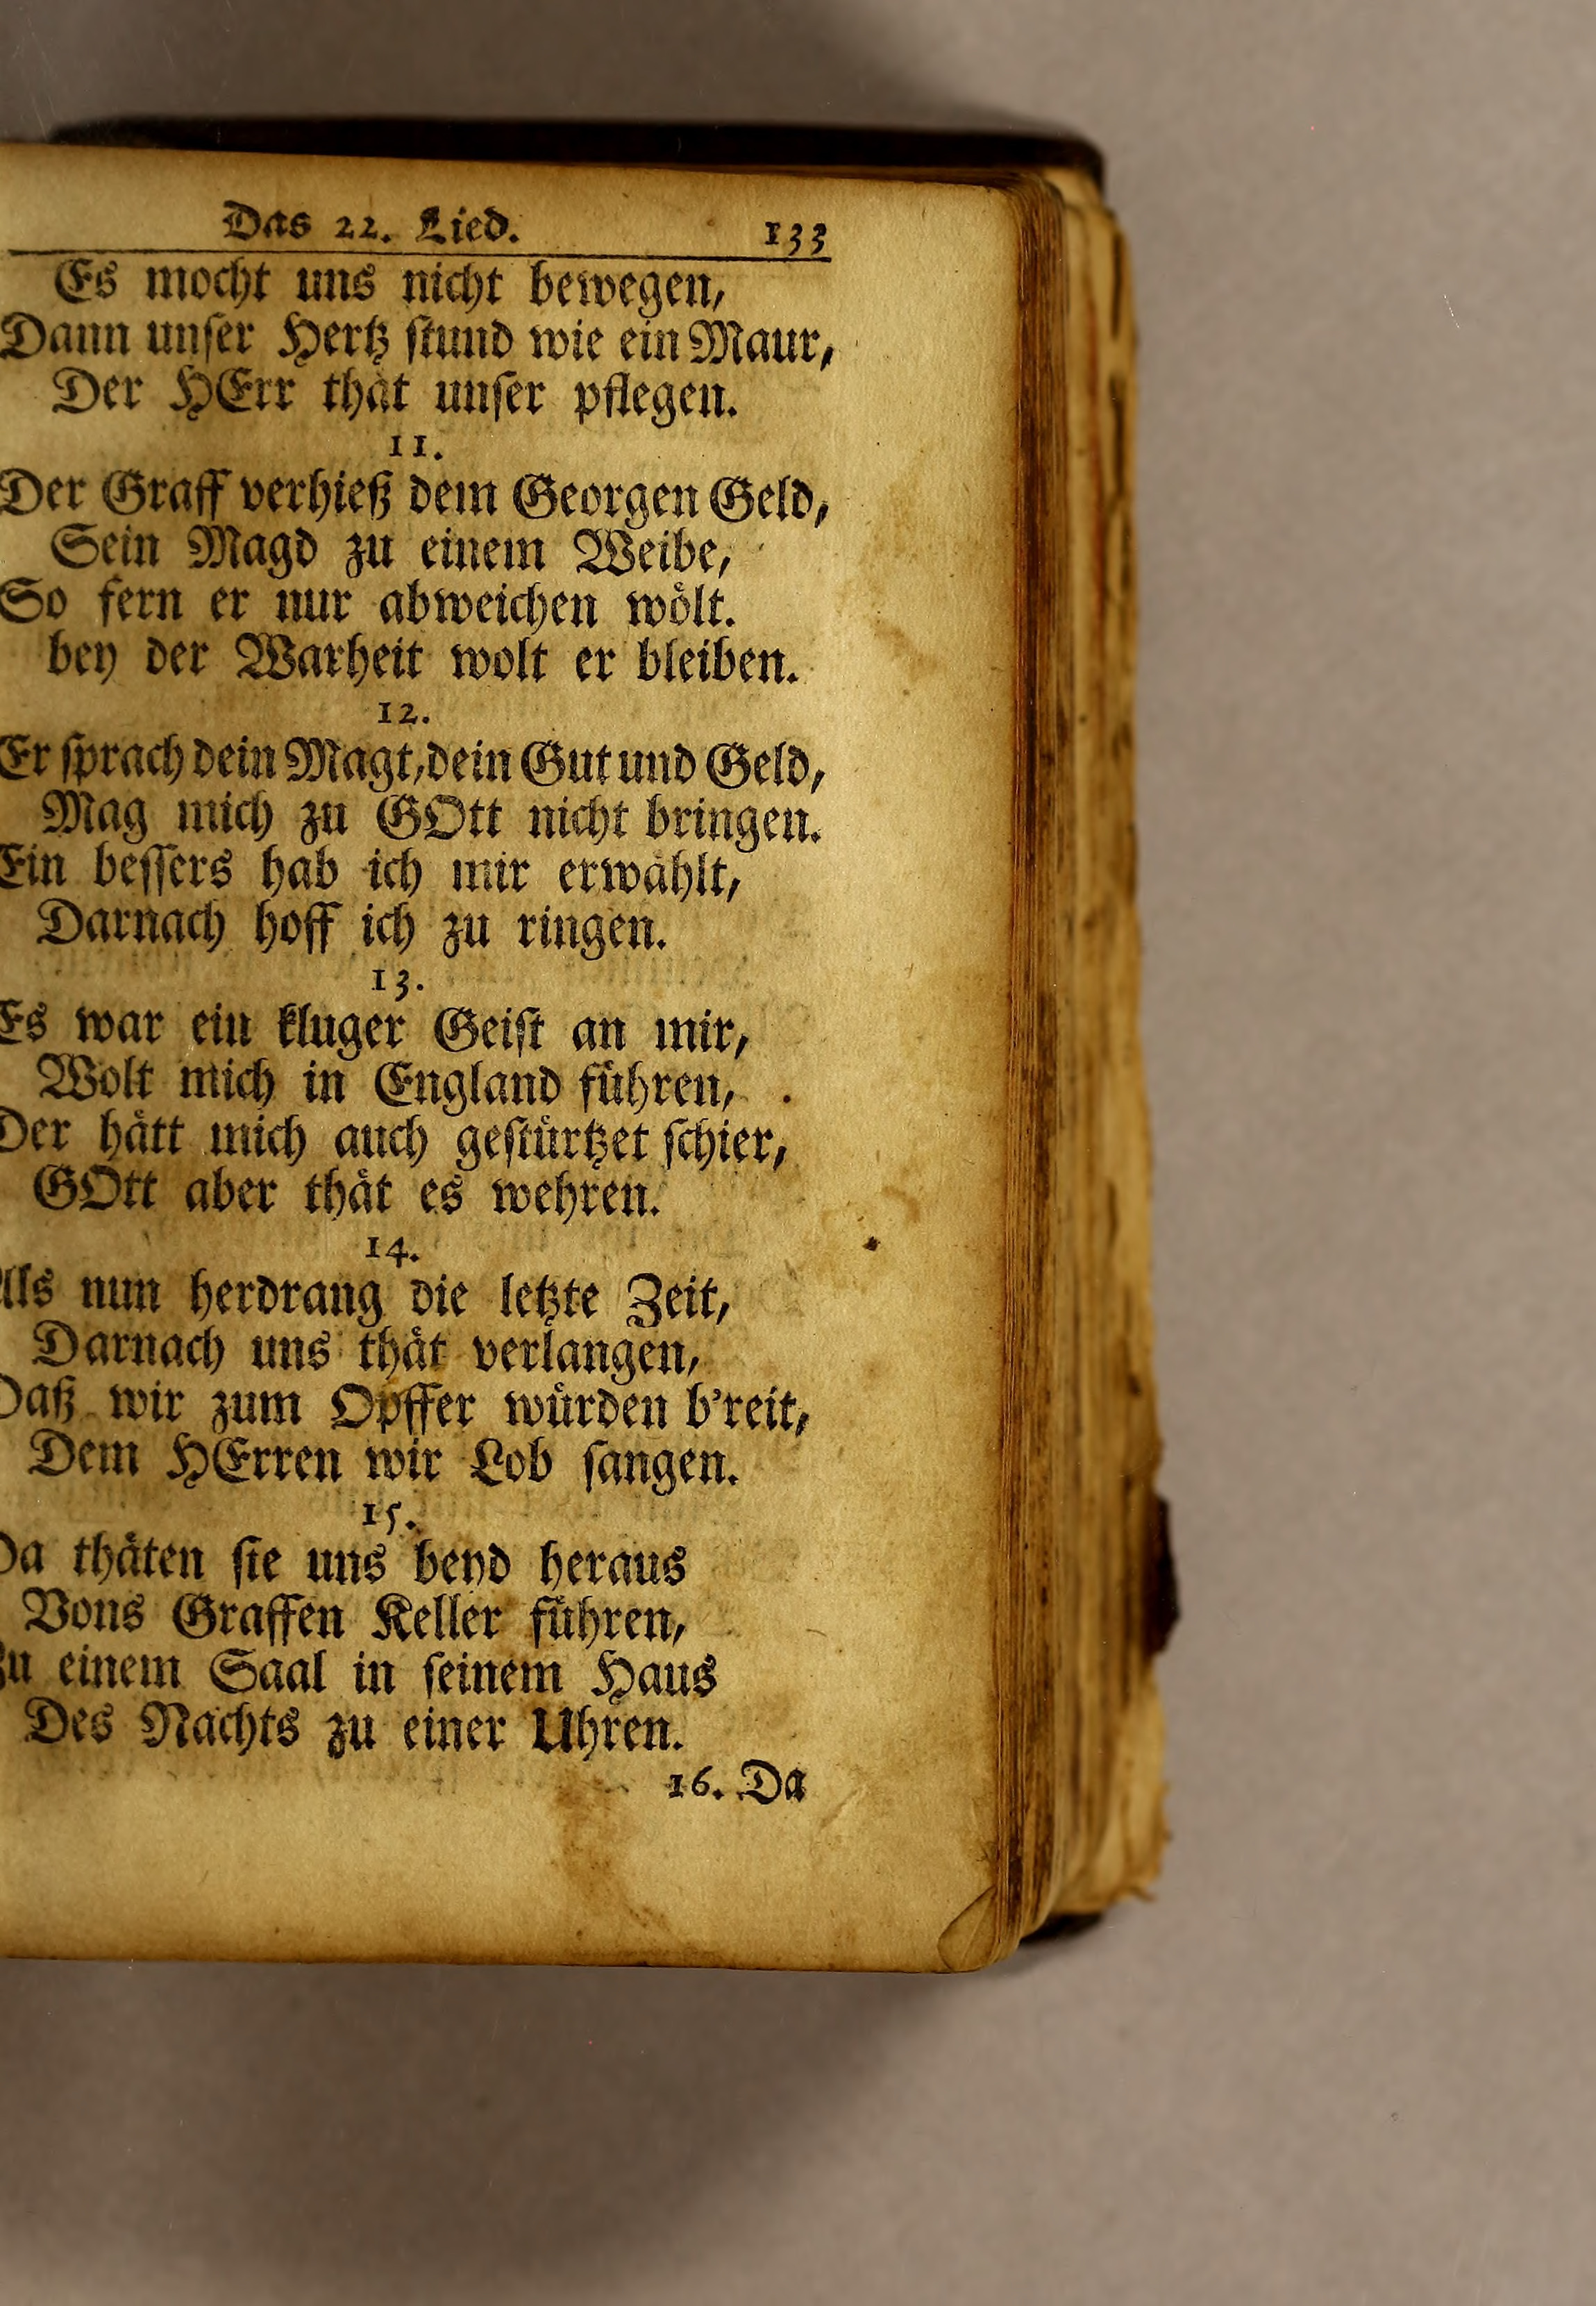 Das 22. Lied. 133
Es mocht uns nicht bewegen,
Dann unſer Hertz ſtund wie ein Maur,
Der HErr thaͤt unſer pflegen.
11.
Der Graff verhieß dem Georgen Geld,
Sein Magd zu einem Weibe,
So fern er nur abweichen woͤlt.
bey der Warheit wolt er bleiben.
12.
Er ſprach dein Magt, dein Gut und Geld,
Mag mich zu GOtt nicht bringen.
Ein beſſers hab ich mir erwaͤhlt,
Darnach hoff ich zu ringen.
13.
Es war ein kluger Geiſt an mir,
Wolt mich in England fuͤhren,
Der haͤtt mich auch geſtuͤrtzet ſchier,
GOtt aber thaͤt es wehren.
14.
Als nun herdrang die letzte Zeit,
Darnach uns thaͤt verlangen,
Daß wir zum Opffer wuͤrden b'reit,
Dem HErren wir Lob ſangen.
15.
Da thaͤten ſie uns beyd heraus
Vons Graffen Keller fuͤhren,
Zu einem Saal in ſeinem Haus
Des Nachts zu einer Uhren.
16. Da